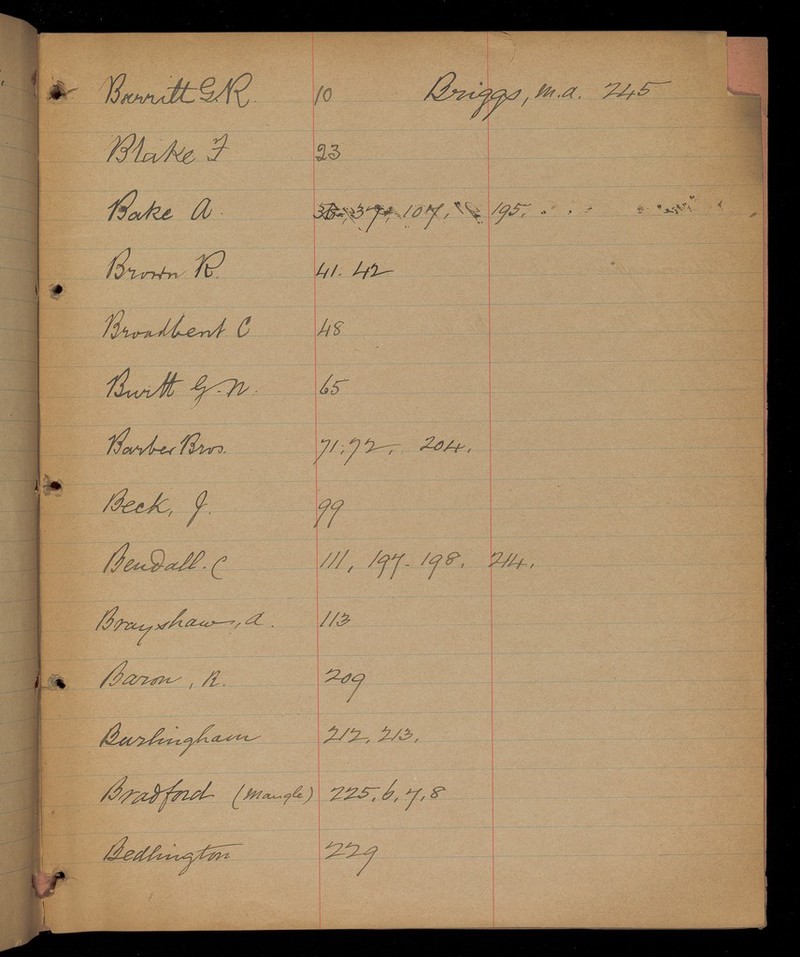 Barritt G.R. 10 Briggs, M.A. 245
Blake F 23
Bake A. 36, 37, 107, 195.
Brown R. 41. 42
Broadbent C 48
Burtt G.N. 65
Barber Bros. 71.72, 204.
Beck, J. 99
Bendall. C 111, 197-198, 214.
Brayshaw, A. 113
Baron, R. 209
Burlingham 212, 213.
Bradford (Mangle) 225, 6, 7, 8
Bedlington 229